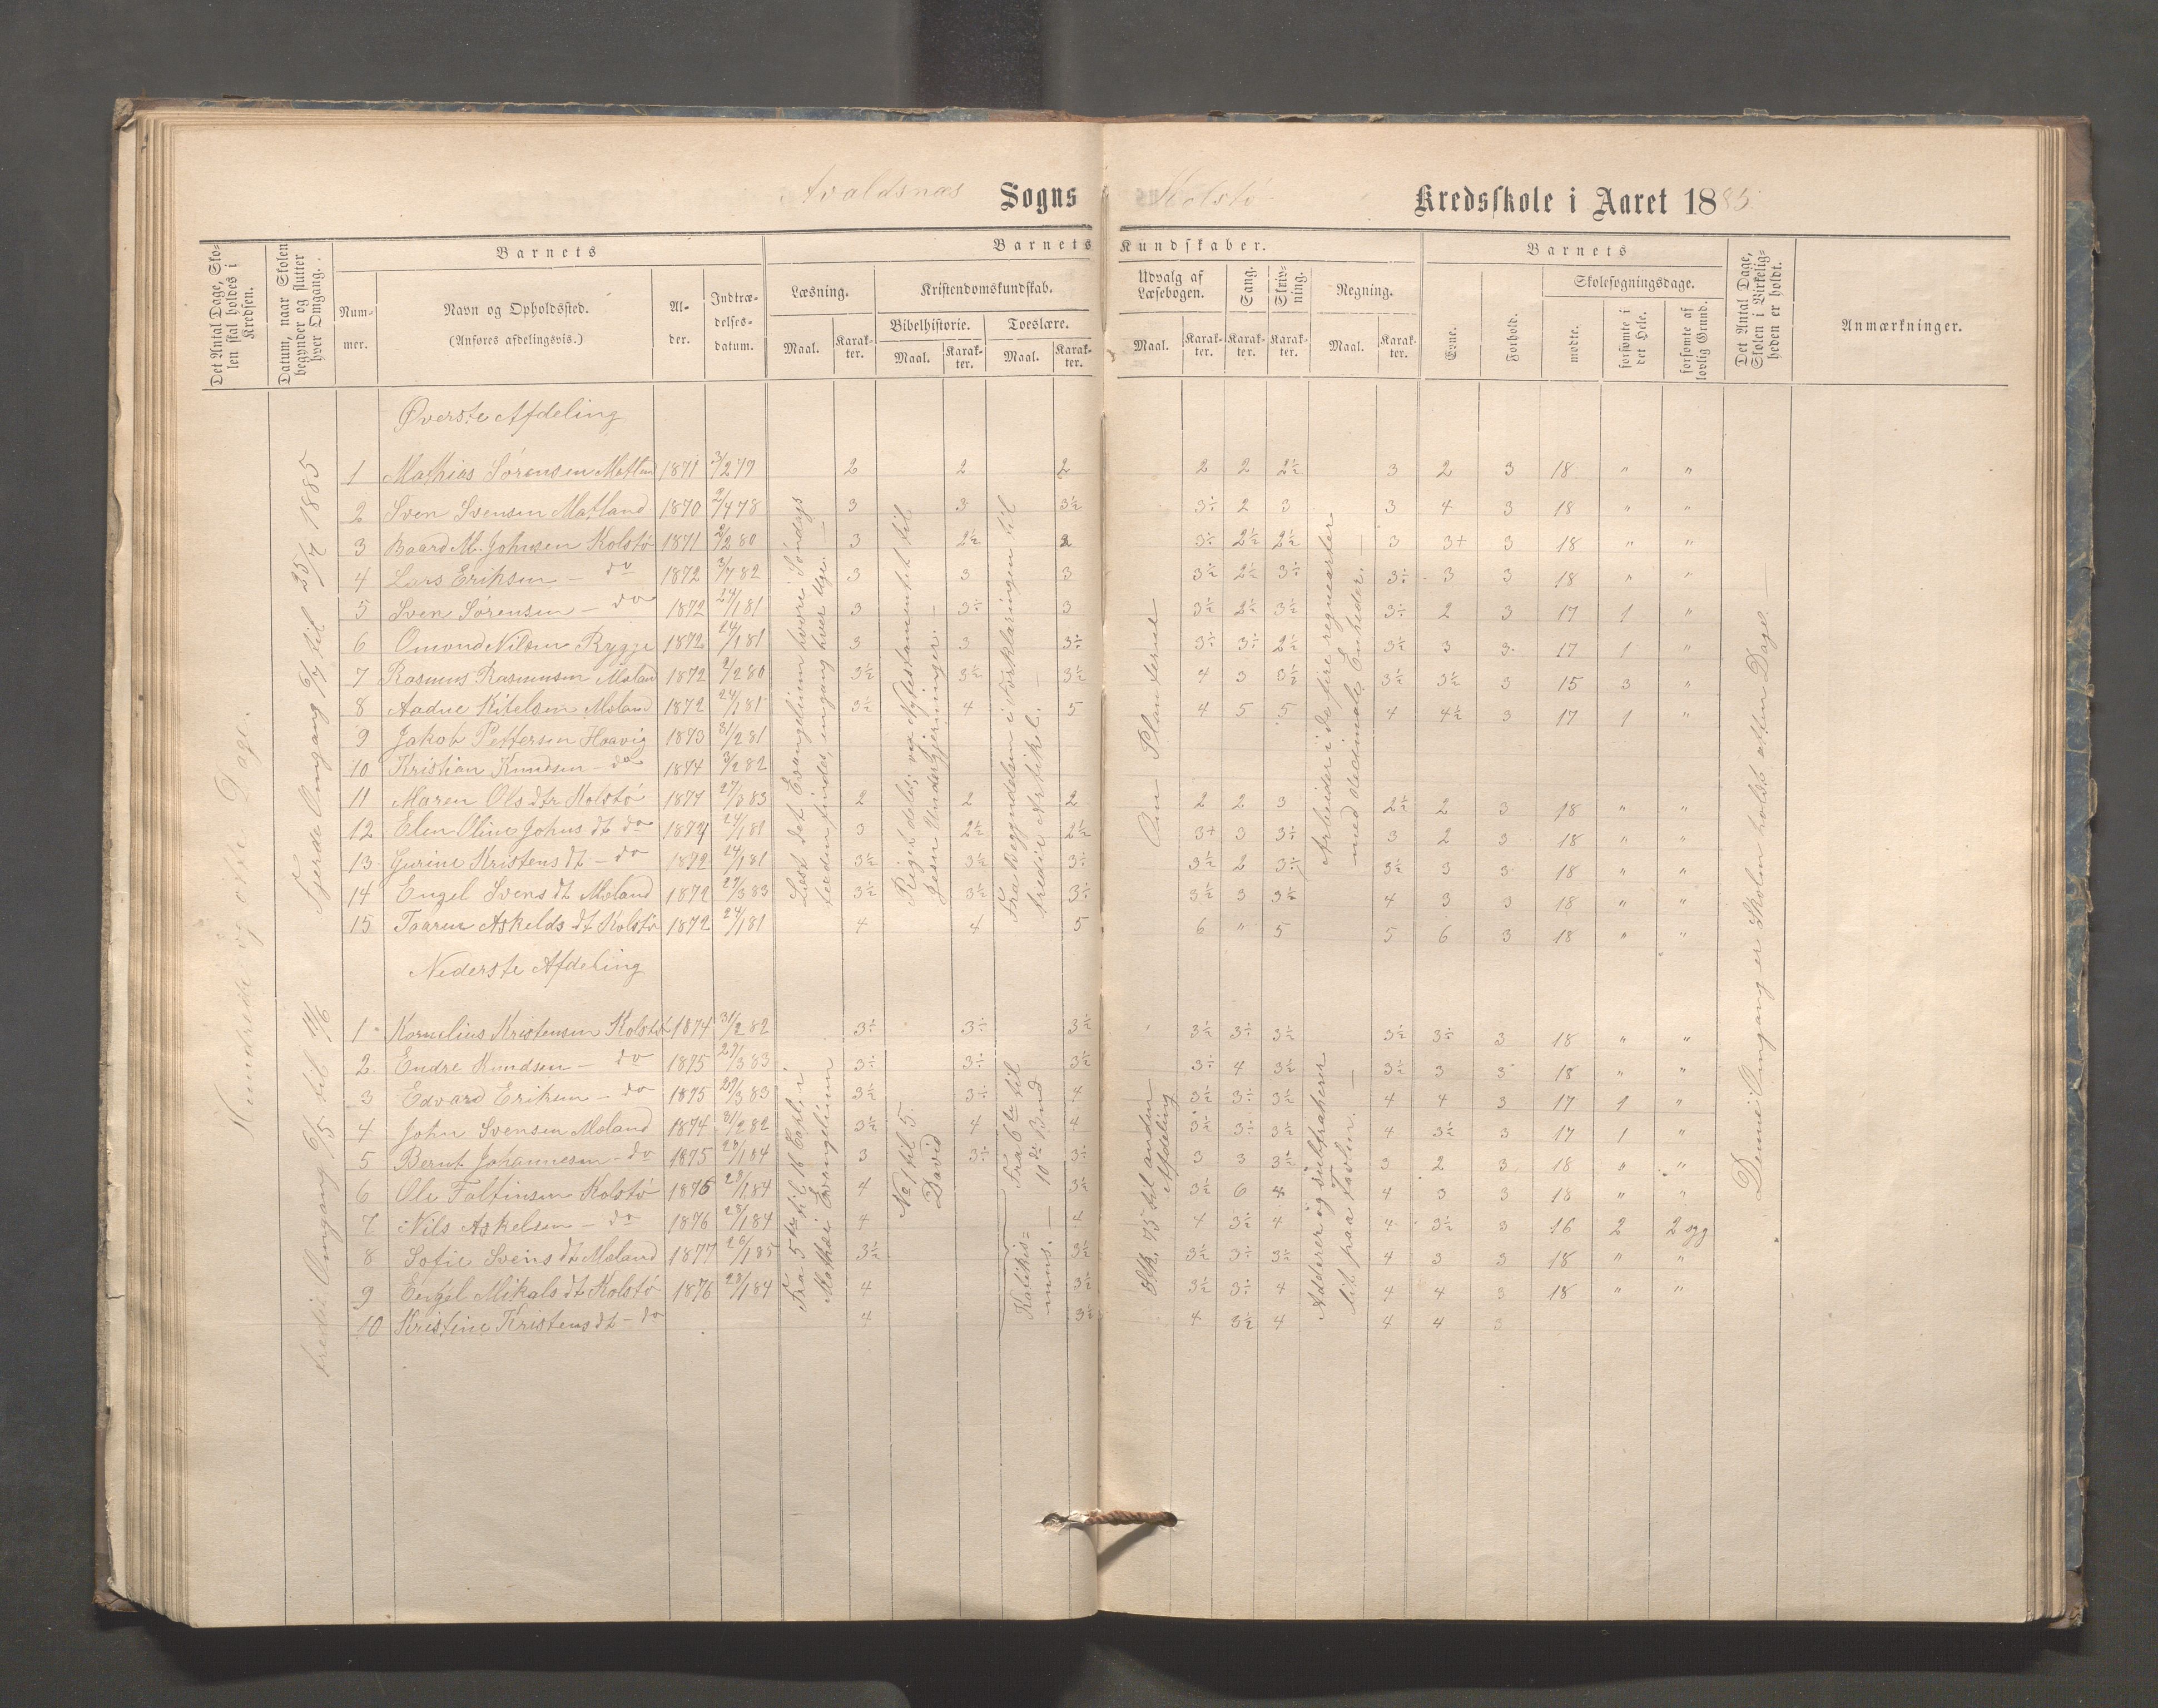 Avaldsnæs Sogns Kolstø Kredsskole i Aaret 1885
Det Antal Dage, Skolen skal holdes i Kredsen.
Datum, naar Skolen begynder og slutter hver Omgang.
Barnets
Nummer.
Navn og Opholdssted.
(Anføres afdelingsvis.)
Alder.
Indtrædelsesdatum.
Barnets Kundskaber.
Læsning.
Maal. Karakter.
Kristendomskundskab.
Bibelhistorie.
Maal. Karakter.
Troeslære.
Maal. Karakter.
Udvalg af Læsebogen.
Maal. Karakter.
Sang.
Karakter.
Skrivning.
Karakter.
Regning.
Maal. Karakter.
Barnets
Evne.
Forhold.
Skolesøgningsdage.
mødte.
forsømte i det Hele.
forsømte af lovlig Grund.
Det Antal Dage, Skolen i Virkeligheden er holdt.
Anmærkninger.
Hundrede og otte Dage.
Fjerde Omgang 6/7 til 25/7 1885
tredie Omgang 6/5 til
Øverste Afdeling
1 Mathias Sørensen 1871 3/2 79 2 2 2 2 2 2½ 3 2 3 18 " "
2 Sven Svensen Matland 1870 2/4 78 3 3 3½ 3÷ 2 3 3 4 3 18 " "
3 Baard M. Johnsen Kolstø 1871 2/2 80 3 2½ 2 3÷ 2½ 2½ 3 3+ 3 18 " "
4 Lars Eriksen – do 1872 3/7 82 3 3 3 3½ 2½ 3÷ 3÷ 3 3 18 " "
5 Sven Sørensen – do 1872 24/1 81 3 3÷ 3 3½ 2½ 3½ 3÷ 2 3 17 1 "
6 Omund Nilsen Rygge 1872 24/1 81 3 3 3÷ 3÷ 3÷ 2½ 3½ 3 3 17 1 "
7 Rasmus Rasmussen Møland 1872 2/2 80 3½ 3½ 3½ 4 3 3½ 3½ 3½ 3 15 3 "
8 Aadne Kitelsen Møland 1872 24/1 81 3½ 4 5 4 5 5 4 4½ 3 17 1 "
9 Jakob Pettersen Haavig 1873 31/2 81
10 Kristian Knudsen – do 1874 3/2 82
11 Maren Olsdtr Kolstø 1871 27/3 83 2 2 2 2 2 3 2½ 2 3 18 " "
12 Elen Oline Johns dt do 1872 24/1 81 3 2½ 2½ 3+ 3 3÷ 3 2 3 18 " "
13 Gurine Kristens dt – do 1872 24/1 81 3½ 3½ 3÷ 3½ 2 3÷ 3½ 3 3 18 " "
14 Engel Svens dt Møland 1872 27/3 83 3½ 3½ 3÷ 3½ 3 3½ 4 3 3 18 " "
15 Taaren Askelds dt Kolstø 1872 24/1 81 4 4 5 6 " 5 5 6 3 18 " "
Læst det Evangelium hvori Søndags
Reger delsi
Nytestamentet til
Jesu Undergjerninger.
Fra Begyndelsen i Forklaringen til
tredie Artikel.
Om Planterne
Arbeider i de fire regnearter
med decimale Enheder.
Denne Omgang er Skolen holdt atten Dage.
Nederste Afdeling
1 Kornelius Kristensen Kolstø 1874 31/2 82 3÷ 3÷ 3½ 3½ 3÷ 3½ 3½ 3÷ 3 18 " "
2 Endre Knudsen – do 1875 27/3 83 3÷ 3÷ 3½ 3÷ 4 3½ 3½ 3 3 18 " "
3 Edvard Eriksen – do 1875 27/3 83 3½ 3÷ 4 3½ 3÷ 3½ 4 4 3 17 1 "
4 John Svensen Møland 1874 31/2 82 3½ 4 4 3½ 3÷ 3½ 4 3½ 3 17 1 "
5 Bernt Johannesen – do 1875 28/1 84 3 3÷ 3÷ 3 3 3½ 3 2 3 18 " "
6 Ole Tolfinsen Kolstø 1875 28/1 84 4 3½ 3½ 6 4 4 3 3 18 " "
7 Nils Askelsen – do 1876 28/1 84 4 4 4 3½ 4 4 3½ 3 16 2 2 syg
8 Sofie Svens dt Møland 1877 26/1 85 3½ 3½ 3½ 3÷ 3½ 4 3 3 18 " "
9 Engel Mikals dt Kolstø 1876 28/1 84 4 3½ 3½ 3÷ 4 4 4 3 18 " "
10 Kristine Kristens dt – do 4 3½ 4 3½ 4 4 4 3
Fra 5te til 16 Capler
Mathæi Evangelium
No 1 til 5.
David
Fra 6te til
10de Bud
Katikismus.
Stk. 75 til anden
Afdeling
Adderer og subtraherer
lit paa Tavlen.